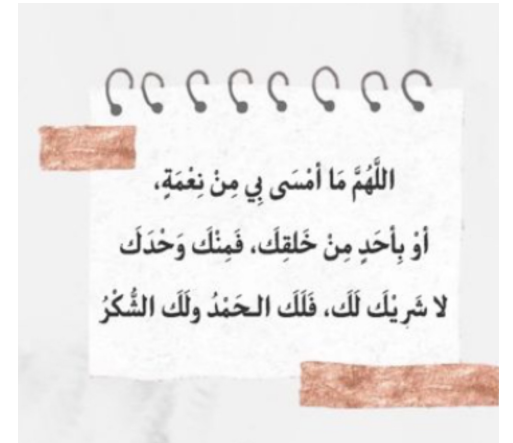 اللَّهُمَّ مَا أمْسَى بِي مِنْ نِعْمَةٍ،
أوْ بِأحَدٍ مِنْ خَلقِكَ، فَمِنْكَ وَحْدَكَ
لا شَرِيْكَ لَكَ، فَلَكَ الـحَمْدُ ولَكَ الشُّكْرُ